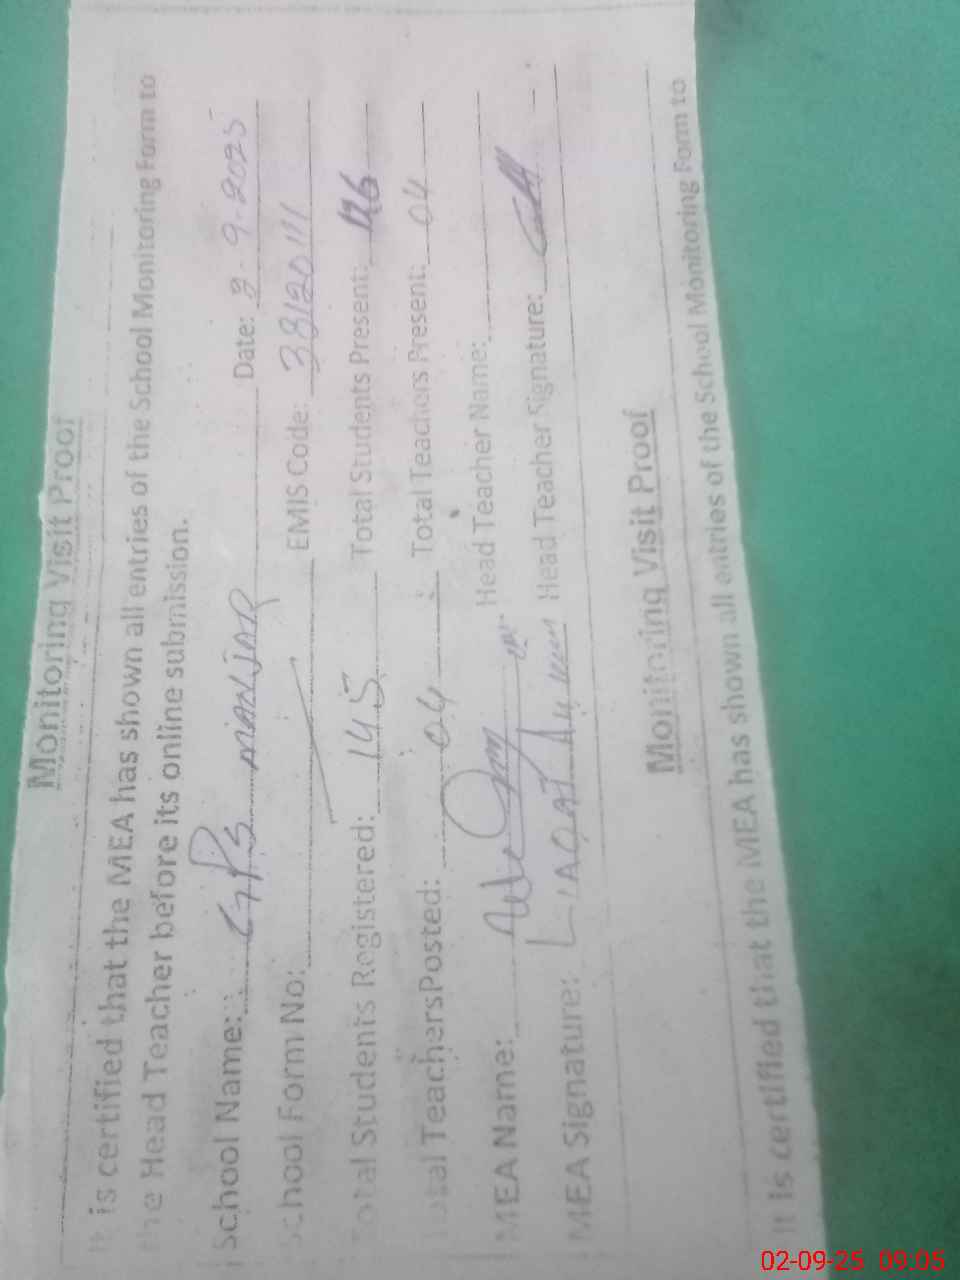 Monitoring Visit Proof
It is certified that the MEA has shown all entries of the School Monitoring Form to
the Head Teacher before its online submission.
School Name: GPS MADIJAR Date: 2-9-2025
School Form No: EMIS Code: 38120111
Total Students Registered: 145 Total Students Present: 126
Total Teachers Posted: 04 Total Teachers Present: 04
MEA Name: Head Teacher Name:
MEA Signature: LIAQAT Head Teacher Signature:
Monitoring Visit Proof
It is certified that the MEA has shown all entries of the School Monitoring Form to
02-09-25 09:05